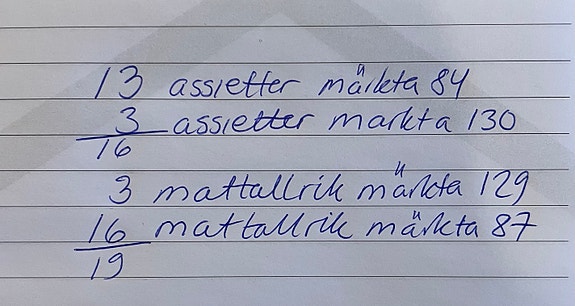 13 assietter märkta 84
3 assietter markta 130
16
3 mattallrik märkta 129
16 mattallrik märkta 87
19